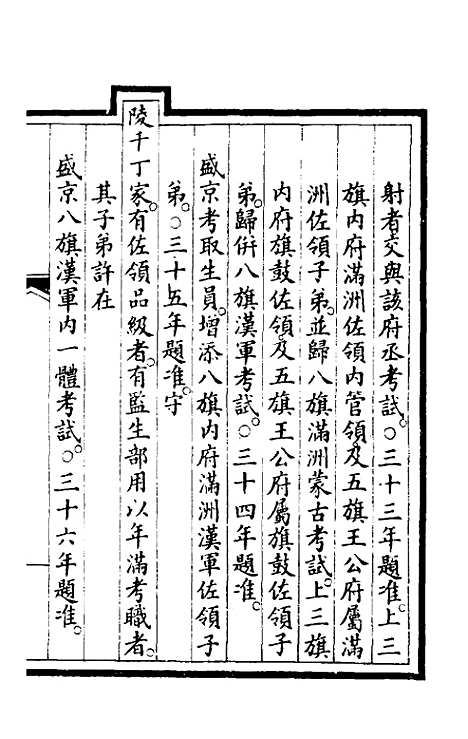 射者交與該府丞考試。○三十三年題准。上三
旗內府滿洲佐領內管領及五旗王公府屬滿
洲佐領子弟。並歸八旗滿洲蒙古考試。上三旗
內府旗鼓佐領。及五旗王公府屬旗鼓佐領子
弟。歸併八旗漢軍考試。○三十四年題准。
盛京考取生員。增添八旗內府滿洲漢軍佐領子
弟。○三十五年題准。守
陵千丁家。有佐領品級者。有監生部用以年滿考職者。
其子弟許在
盛京八旗漢軍內一體考試。○三十六年題准。